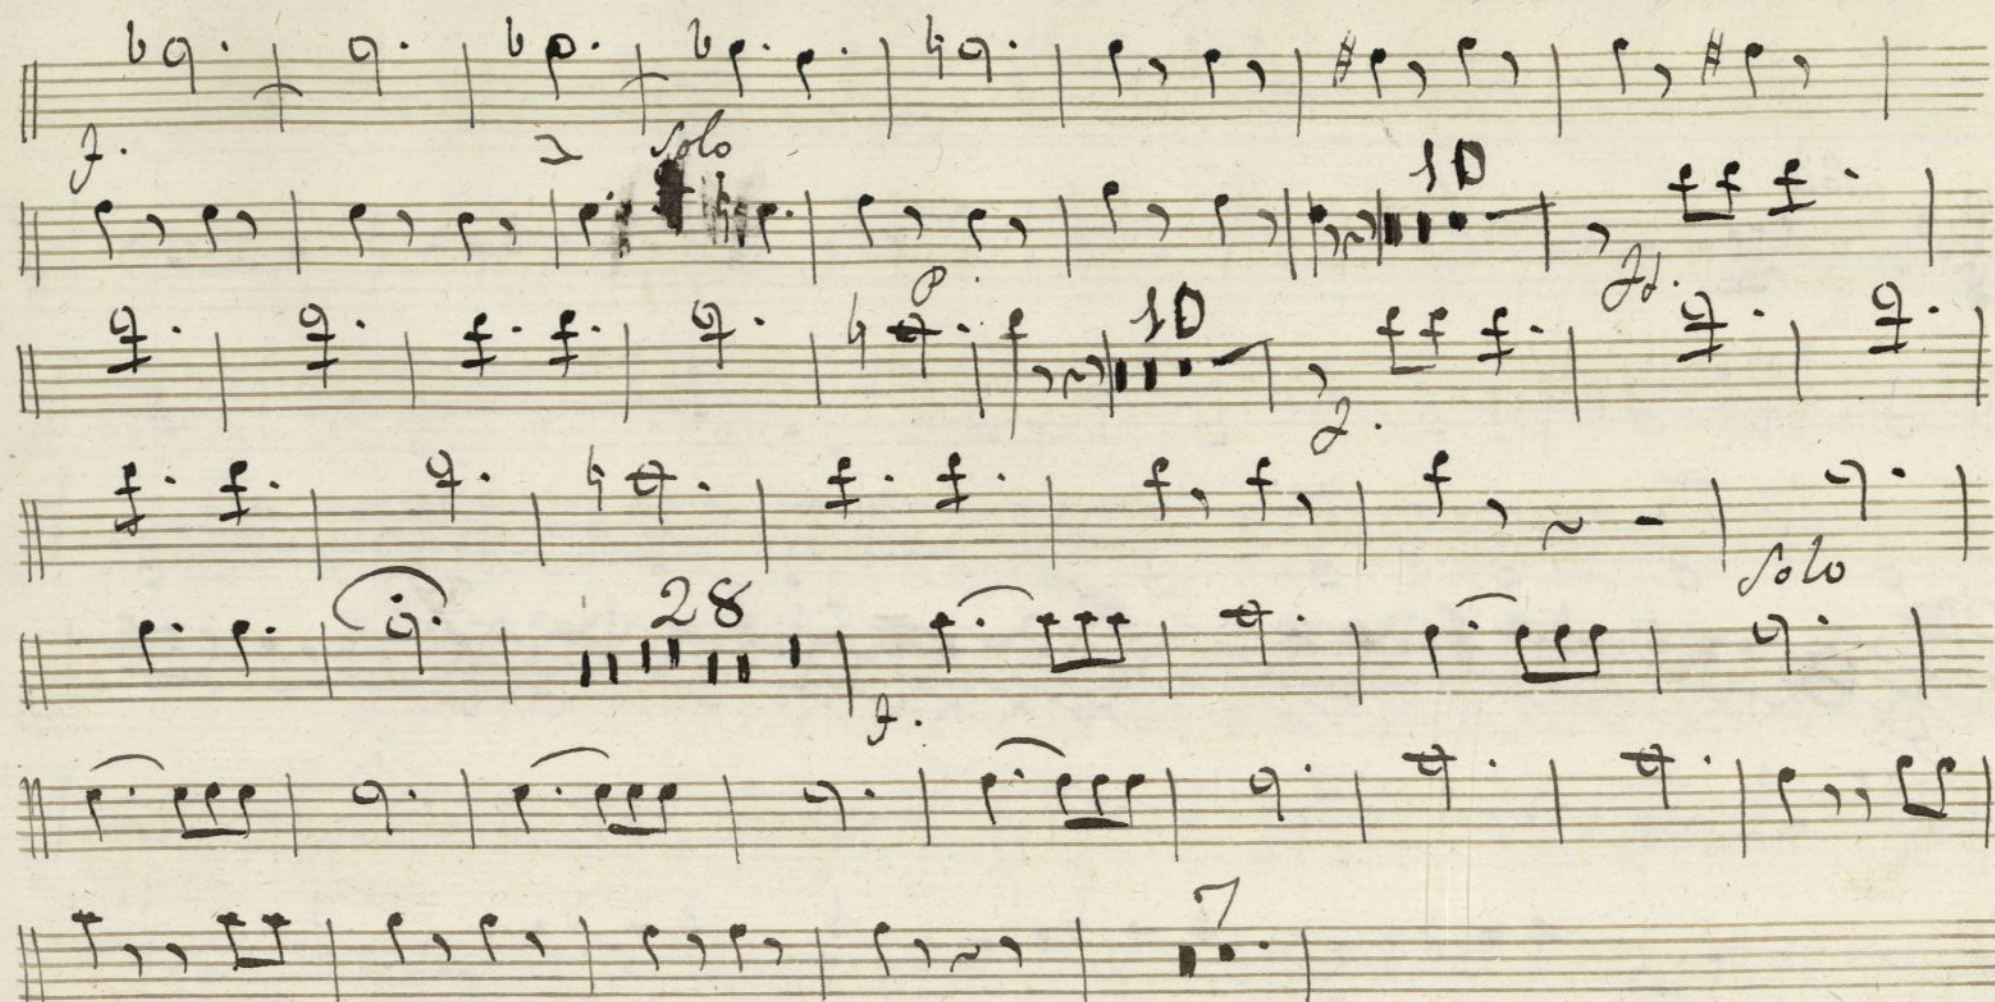 f.
Solo
10
p.
10
ff.
f.
Solo
28
f.
7